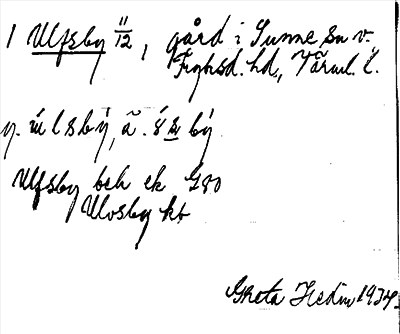 1 Ulfsby 11/12, gård i Sunne sn v.
Fryksd. hd., Värml. l.
y. ú l s bý, ä.
Ulfsby beh ek G80
Ulvsby kb
Greta Hedin 1934.